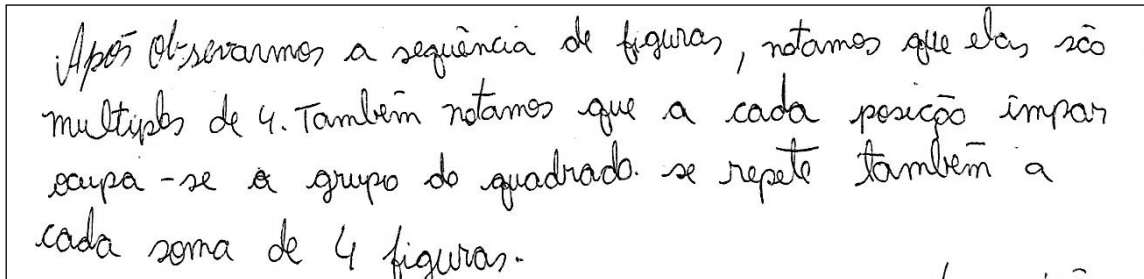 Após observarmos a sequência de figuras, notamos que elas são
multiplos de 4. Também notamos que a cada posição impar
ocupa-se o grupo do quadrado. se repete também a
cada soma de 4 figuras.